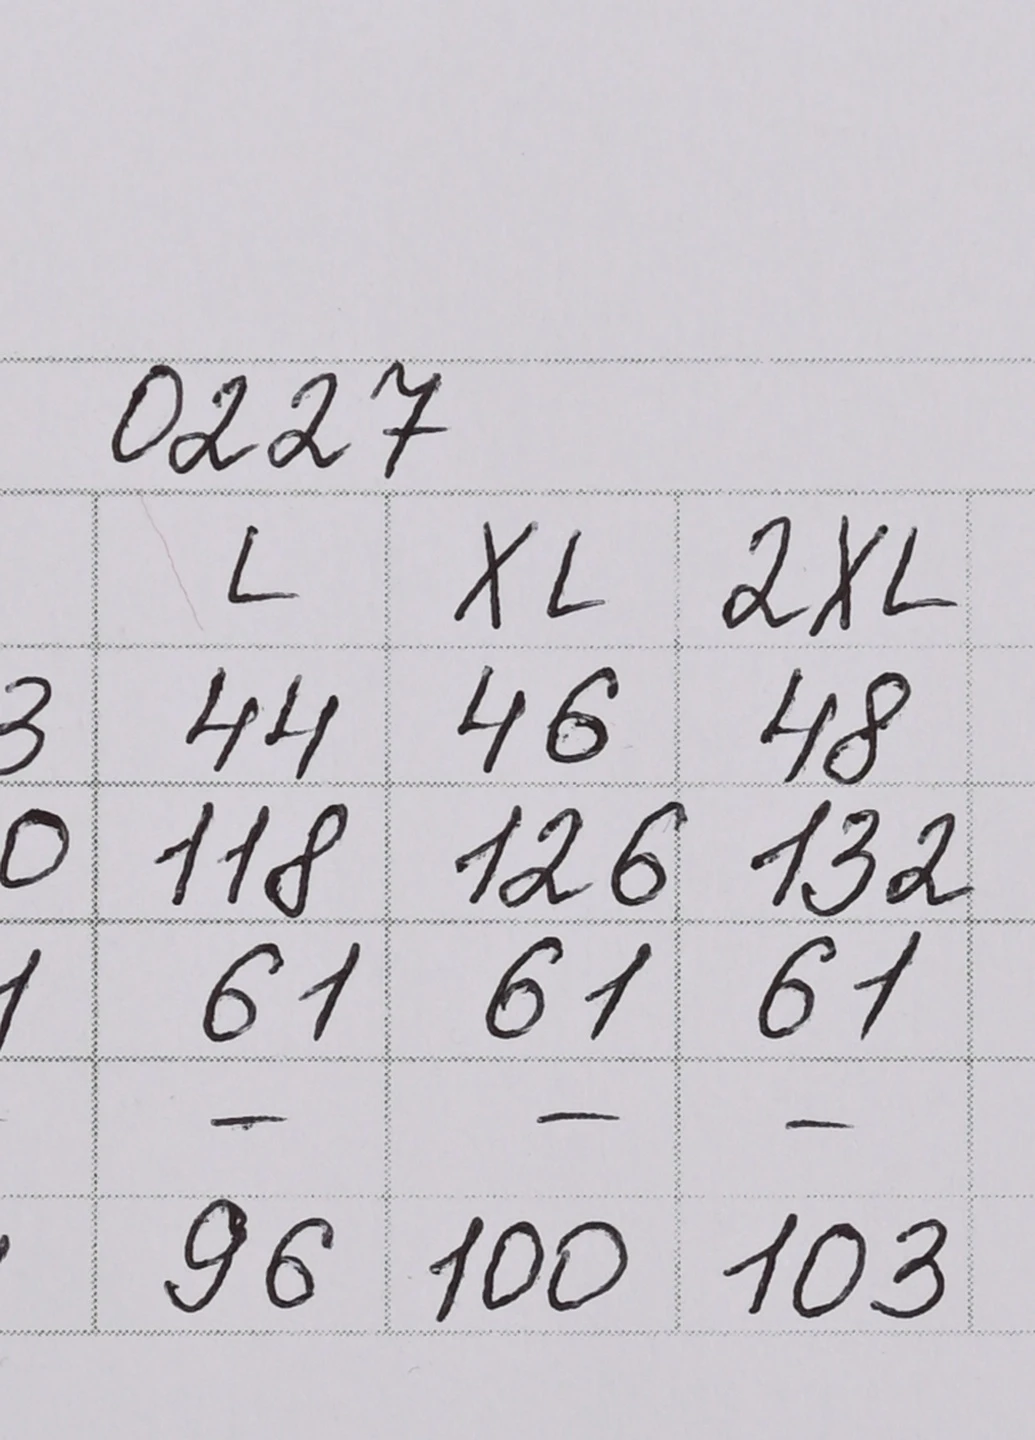 0227
L XL 2XL
3 44 46 48
0 118 126 132
1 61 61 61
— — —
96 100 103